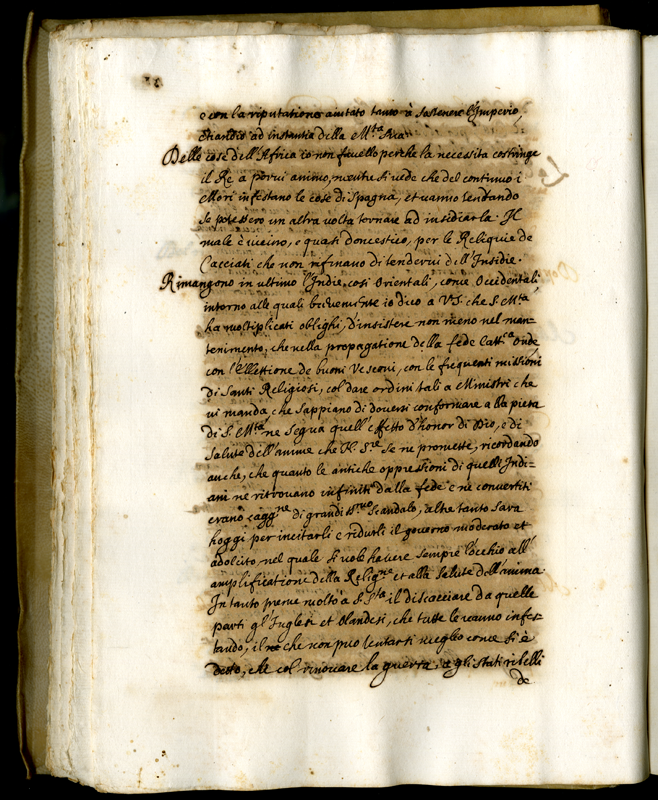 e con la riputatione aiutato tanto à sostenere l'Imperio,
etiandio ad instantia della M.tà Sua.
Delle cose dell'Africa io non favello perche la necessita costringe
il Re a porvi animo, mentre si vede che del continuo i
Mori infestano le cose di Spagna, et vanno tentando
se potessero un altra volta tornare ad insidiarla. Il
male è vicino, e quasi domestico, per le Reliquie de
Cacciati che non rifinano di tendervi dell'Insidie.
Rimangono in ultimo l'Indie, cosi Orientali, come Occidentali,
intorno alle quali brevemente io dico a V.S. che S. M.tà
ha moltiplicati oblighi, d'insistere non meno nel man=
tenimento, che nella propagatione della fede Catt.ca Onde
con l'Elettione de buoni Vescovi, con le frequenti missioni
di Santi Religiosi, col dare ordini tali a Ministri che
vi manda, che sappiano di doversi conformare alla pieta
di S. M.tà ne segua quell'effetto d'honor di Dio, e di
salute dell'anime che N. S.re se ne promette, ricordando
anche, che quanto le antiche oppressioni di quelli Indi=
ani ne ritrovano infiniti dalla fede e ne convertiti
erano cagg.ne di grandiss.mo scandalo, altre tanto sara
hoggi per incitarli e ridurli il governo moderato et
adolcito, nel quale si vole havere sempre l'occhio all'
amplificatione della Relig.ne et alla salute dell'anima.
In tanto preme molto à S. S.tà il discacciare da quelle
parti gl'Inglesi et Olandesi, che tutte le vanno infes=
tando, il che non puo tentarsi meglio come si è
detto, che col rinovare la guerra, a gli stati ribelli
de